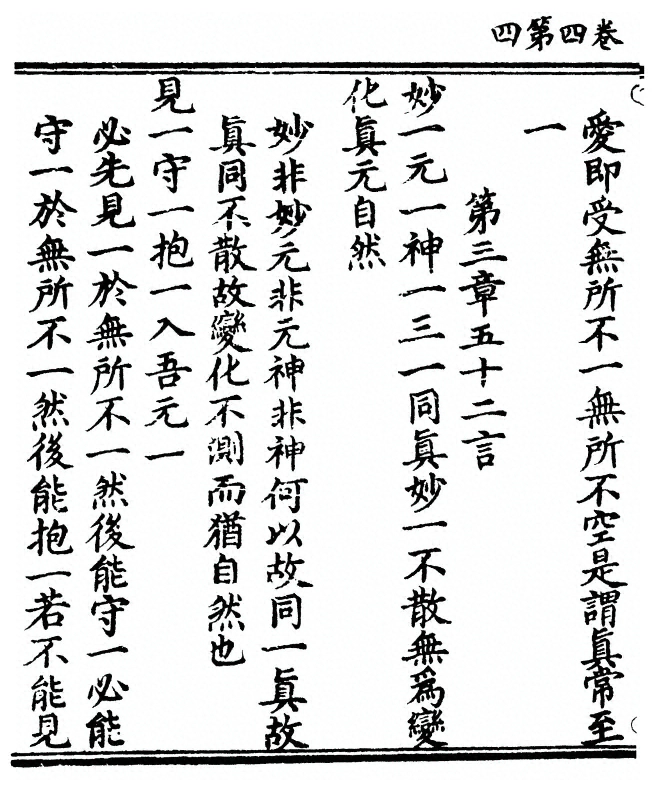 四第四卷
愛即受無所不一無所不空是謂眞常至
一
第三章五十二言
妙一元一神一三一同眞妙一不散無爲變
化眞元自然
妙非妙元非元神非神何以故同一眞故
眞同不散故變化不測而猶自然也
見一守一抱一入吾元一
必先見一於無所不一然後能守一必能
守一於無所不一然後能抱一若不能見